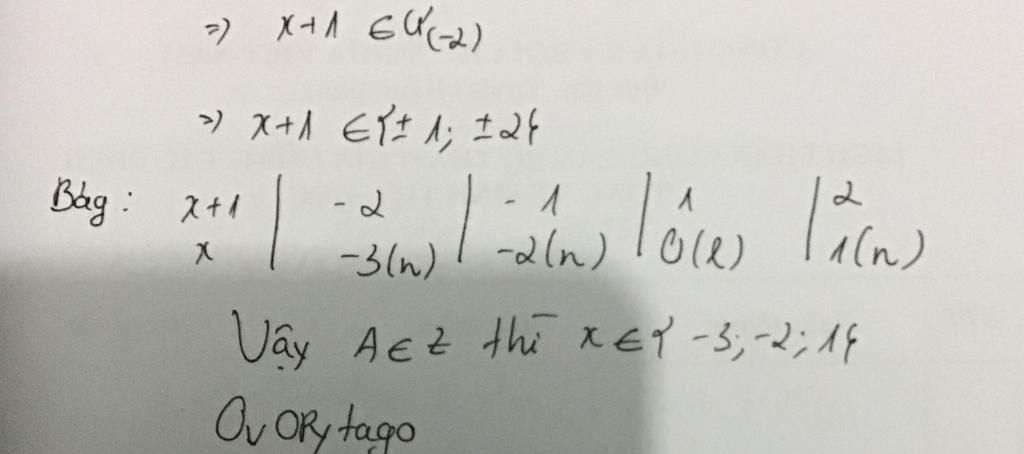 =) x+1 ∈ Ư(-2)
=) x+1 ∈ {± 1; ± 2}
Bảg: x+1 | -2 | -1 | 1 | 2
x | -3(n) | -2(n) | 0(l) | 1(n)
Vậy A ∈ Z thì x ∈ { -3; -2; 1}